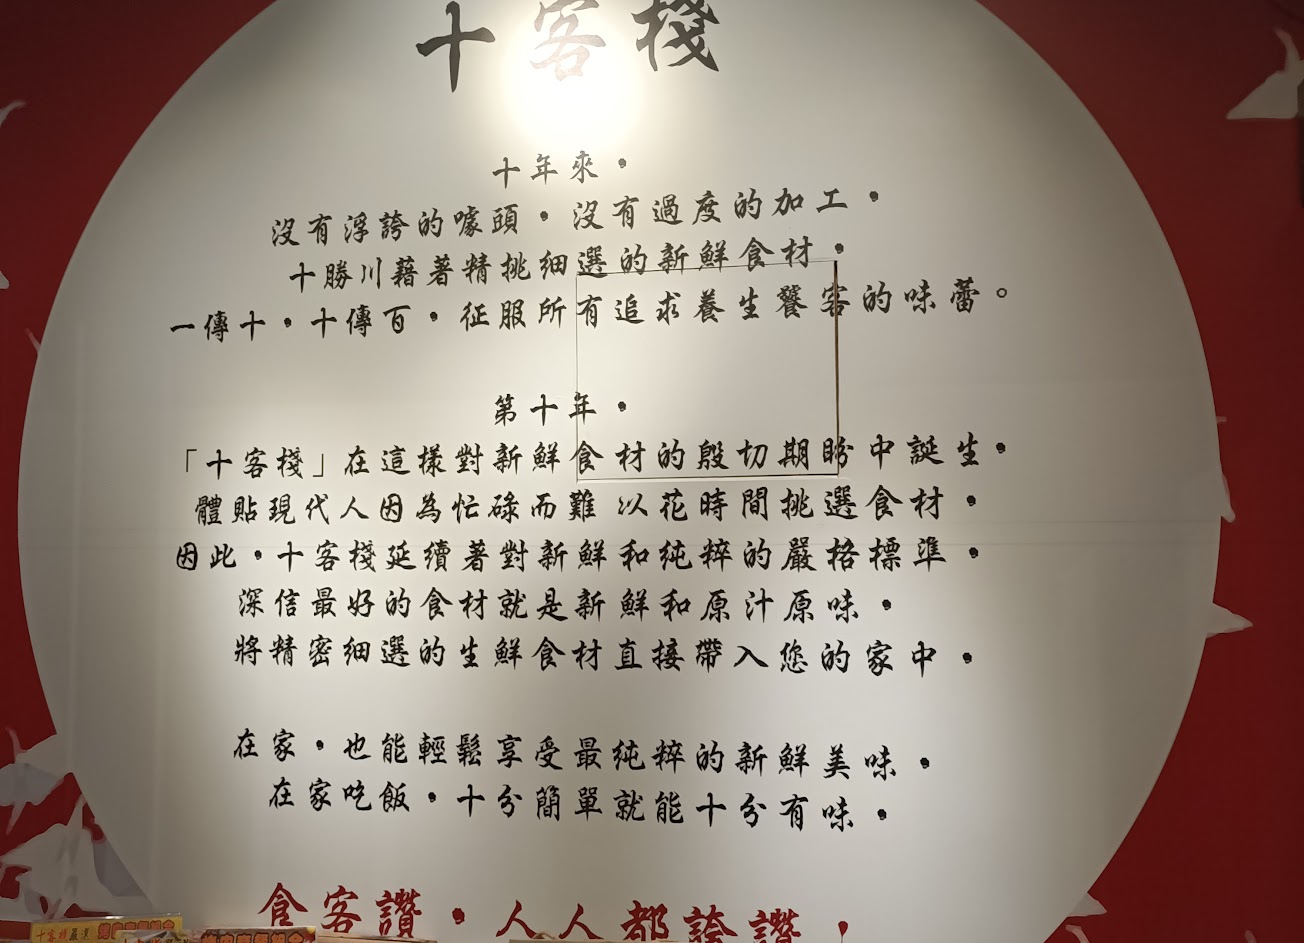 十客棧
十年來，
沒有浮誇的噱頭，沒有過度的加工，
十勝川藉著精挑細選的新鮮食材，
一傳十，十傳百，征服所有追求養生饕客的味蕾。
第十年，
「十客棧」在這樣對新鮮食材的殷切期盼中誕生，
體貼現代人因為忙碌而難以花時間挑選食材，
因此，十客棧延續著對新鮮和純粹的嚴格標準，
深信最好的食材就是新鮮和原汁原味，
將精密細選的生鮮食材直接帶入您的家中，
在家，也能輕鬆享受最純粹的新鮮美味，
在家吃飯，十分簡單就能十分有味，
食客讚，人人都誇讚，
十客棧嚴選